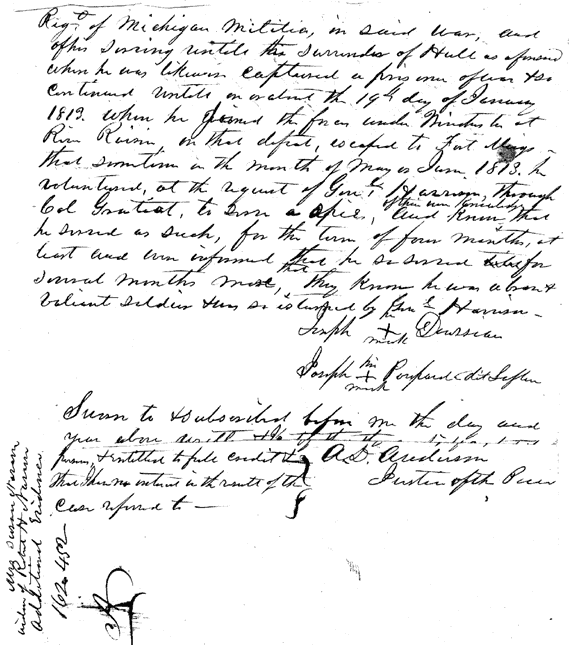 Regt. of Michigan Militia, in said War, and
of his serving untill the surrender of Hull as aforesaid
when he was likewise captured a prisoner of war & so
continued untill on or about the 19th day of January
1813. when he joined the forces under Winchester at
River Raisin, on that defeat, escaped to Fort Meigs
that sometime in the month of May or June 1813. he
volunteered, at the request of Genl. Harrison, through
Col Gratiot, to serve a spie, of their own knowledge and know that
he served as such, for the term of four months, at
least and are informed that he so served for
several months more, that they know he was a brave &
valient soldier & was so esteemed by Genl. Harrison
Joseph his X mark
Joseph his X mark
Sworn to & subscribed before me the day and
year above
person, & entitled to full credit & A. D. Anderson
that I have no interest in the result of the Justice of the Peace
case referred to —
Mrs Susan
widow of Robt H
Additional Evidence
162.452